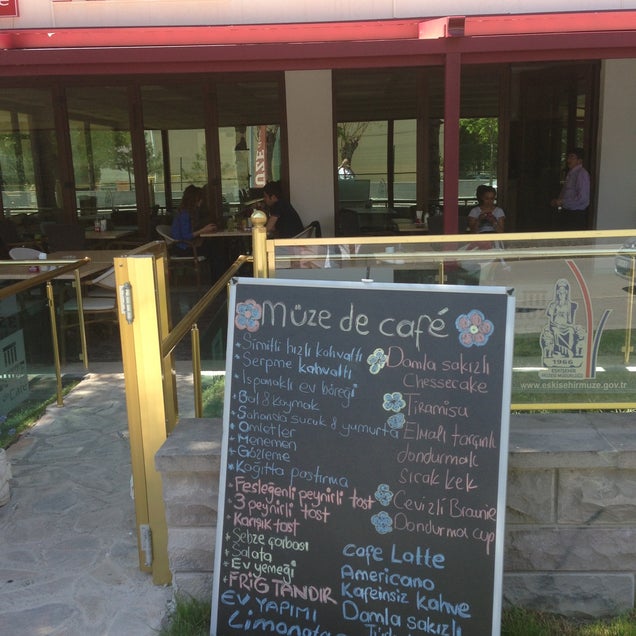 müze de café
* Simitli hızlı kahvaltı
* Serpme kahvaltı
* Ispanaklı ev böreği
* Bal & kaymak
* Sahanda sucuk & yumurta
* Omletler
* Menemen
* Gözleme
* Kağıtta pastırma
* Fesleğenli peynirli tost
* 3 peynirli tost
* Karışık tost
* Sebze çorbası
* Salata
* Ev yemeği
* FRİG TANDIR
EV YAPIMI
Limonata
Damla sakızlı
Chessecake
Tiramisu
Elmalı tarçınlı
dondurmalı
sıcak kek
Cevizli Brawnie
Dondurma cup
Cafe Latte
Americano
Kafeinsiz kahve
Damla sakızlı
1966
www.eskisehirmuze.gov.tr